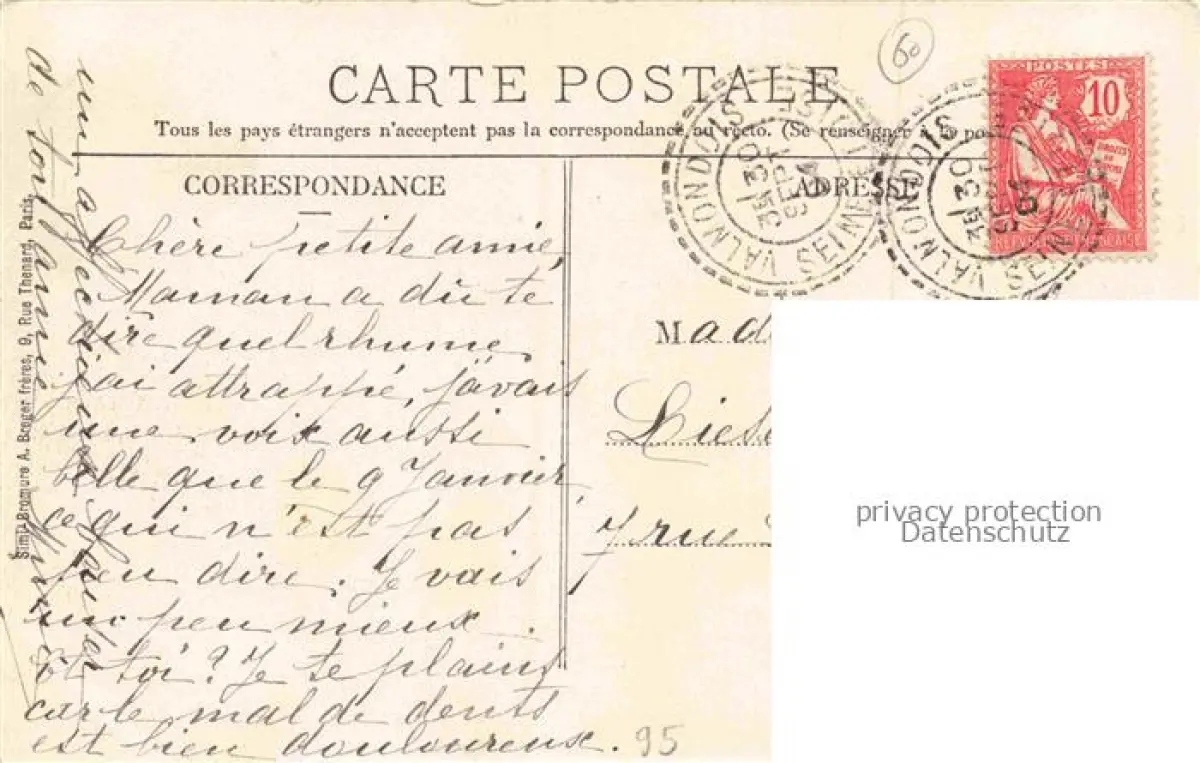 60
CARTE POSTALE
Tous les pays étrangers n'acceptent pas la correspondance au recto. (Se renseigner à la poste
CORRESPONDANCE
ADRESSE
Chère petite amie,
Maman a dû te
dire quel rhume
j'ai attrappé, j'avais
une voix aussi
belle que le 9 Janvier,
ce qui n'est pas
peu dire. Je vais
un peu mieux.
Et toi? Je te plains
car le mal de dents
est bien douloureux.
95
de ton amie
Simili-Bromure A. Breger frères, 9, Rue Thenard, Paris
VALMONDOIS
SEINE
30
SEPT
04
VALMONDOIS
SEINE
30
SEPT
04
POSTES
10
DROITS DE L'HOMME
REPUBLIQUE FRANÇAISE
Mad
7 rue
privacy protection
Datenschutz